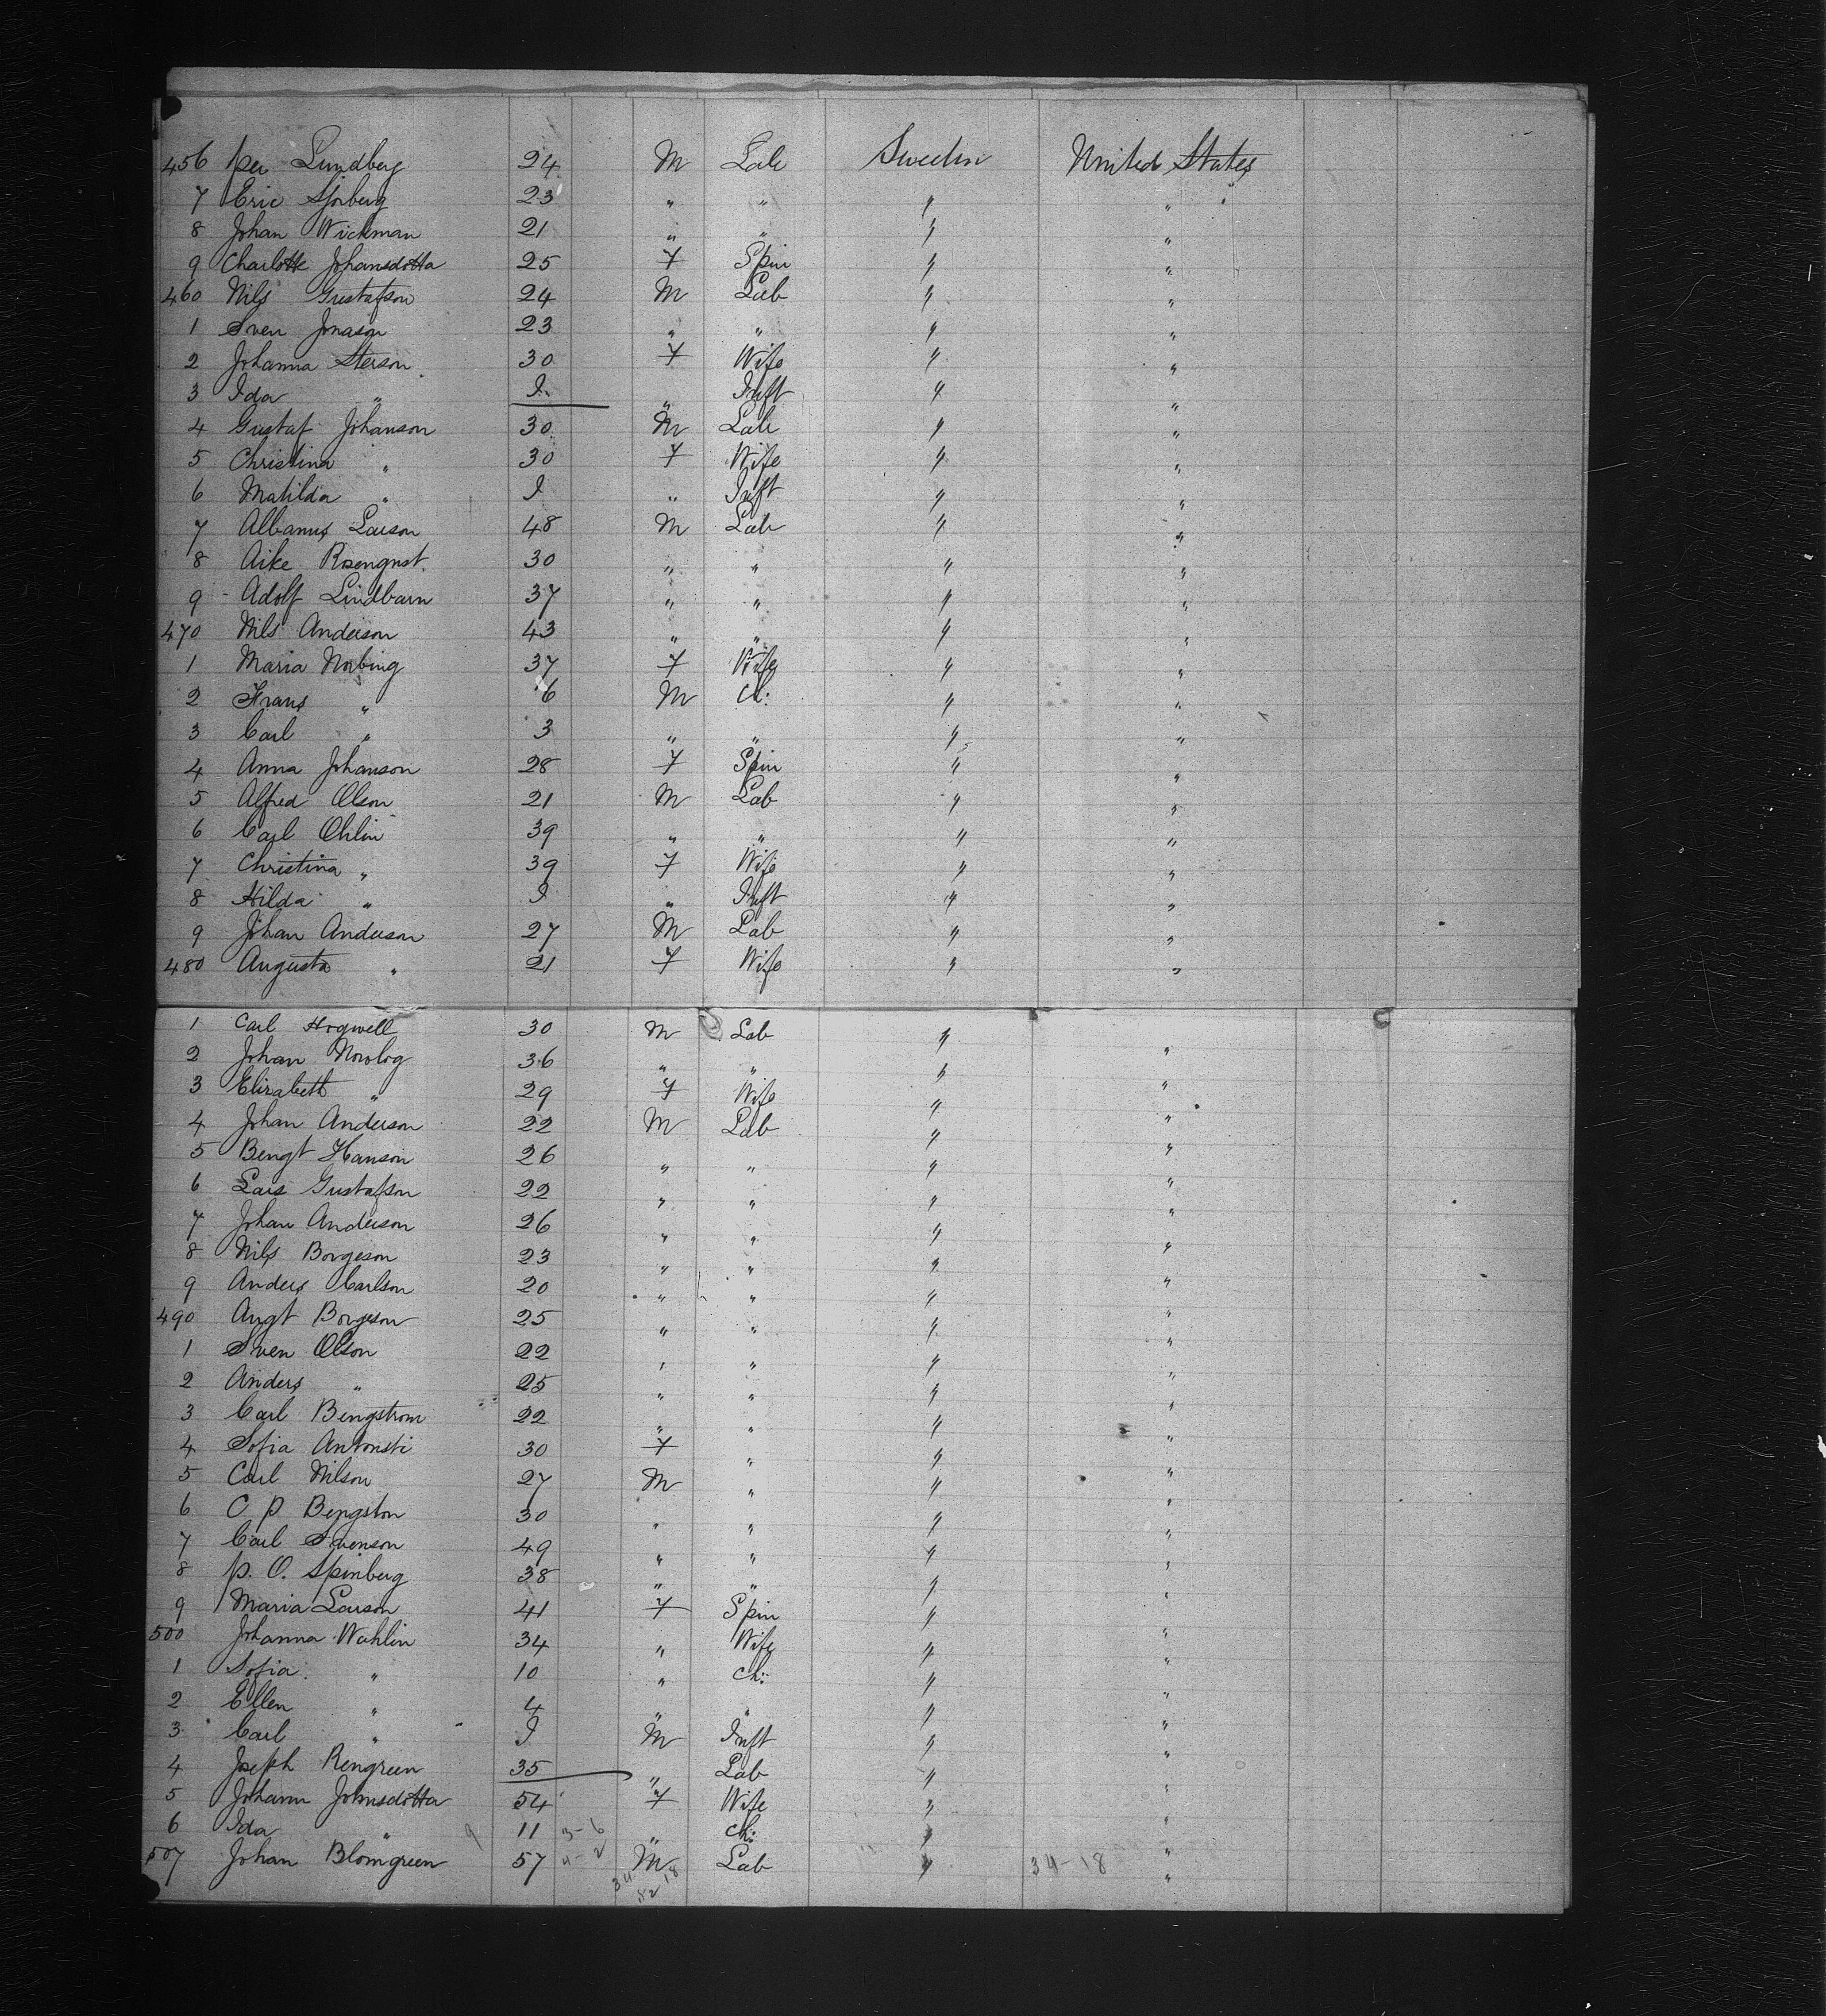 456 Per Lundberg 24 M Lab Sweden United States
7 Eric Sjorberg 23 " " " "
8 Johan Wickman 21 " " " "
9 Charlotte Johansdotta 25 F Spin " "
460 Nils Gustafson 24 M Lab " "
1 Sven Jonason 23 " " " "
2 Johanna Sterson 30 F Wife " "
3 Ida " I " Inft " "
4 Gustaf Johanson 30 M Lab " "
5 Christina " 30 F Wife " "
6 Matilda " I " Inft " "
7 Albanus Larson 48 M Lab " "
8 Aike Rosengust. 30 " " " "
9 Adolf Lindbarn 37 " " " "
470 Nils Anderson 43 " " " "
1 Maria Norbing 37 F Wife " "
2 Frans " 6 M Ch: " "
3 Carl " 3 " " " "
4 Anna Johanson 28 F Spin " "
5 Alfred Olson 21 M Lab " "
6 Carl Ohlin 39 " " " "
7 Christina " 39 F Wife " "
8 Hilda " I " Inft " "
9 Johan Anderson 27 M Lab " "
480 Augusta " 21 F Wife " "
1 Carl Hogwell 30 M Lab " "
2 Johan Norolog 36 " " " "
3 Elizabeth " 29 F Wife " "
4 Johan Anderson 22 M Lab " "
5 Bengt Hanson 26 " " " "
6 Lars Gustafson 22 " " " "
7 Johan Anderson 26 " " " "
8 Nils Borgeson 23 " " " "
9 Anders Carlson 20 " " " "
490 Augt Borgeson 25 " " " "
1 Sven Olson 22 " " " "
2 Anders " 25 " " " "
3 Carl Bengstrom 22 " " " "
4 Sofia Antonsti 30 F " " "
5 Carl Nilson 27 M " " "
6 C P Bengston 30 " " " "
7 Carl Svenson 49 " " " "
8 P. O. Spinberg 38 " " " "
9 Maria Larson 41 F Spin " "
500 Johanna Wahlin 34 " Wife " "
1 Sofia " 10 " Ch: " "
2 Ellen " 4 " " " "
3 Carl " I M Inft " "
4 Joseph Rengreen 35 " Lab " "
5 Johann Johnsdotta 54 F Wife " "
6 Ida " 9 11 3-6 " Ch: " "
507 Johan Blomgreen 57 4-2 M Lab " 34-18 "